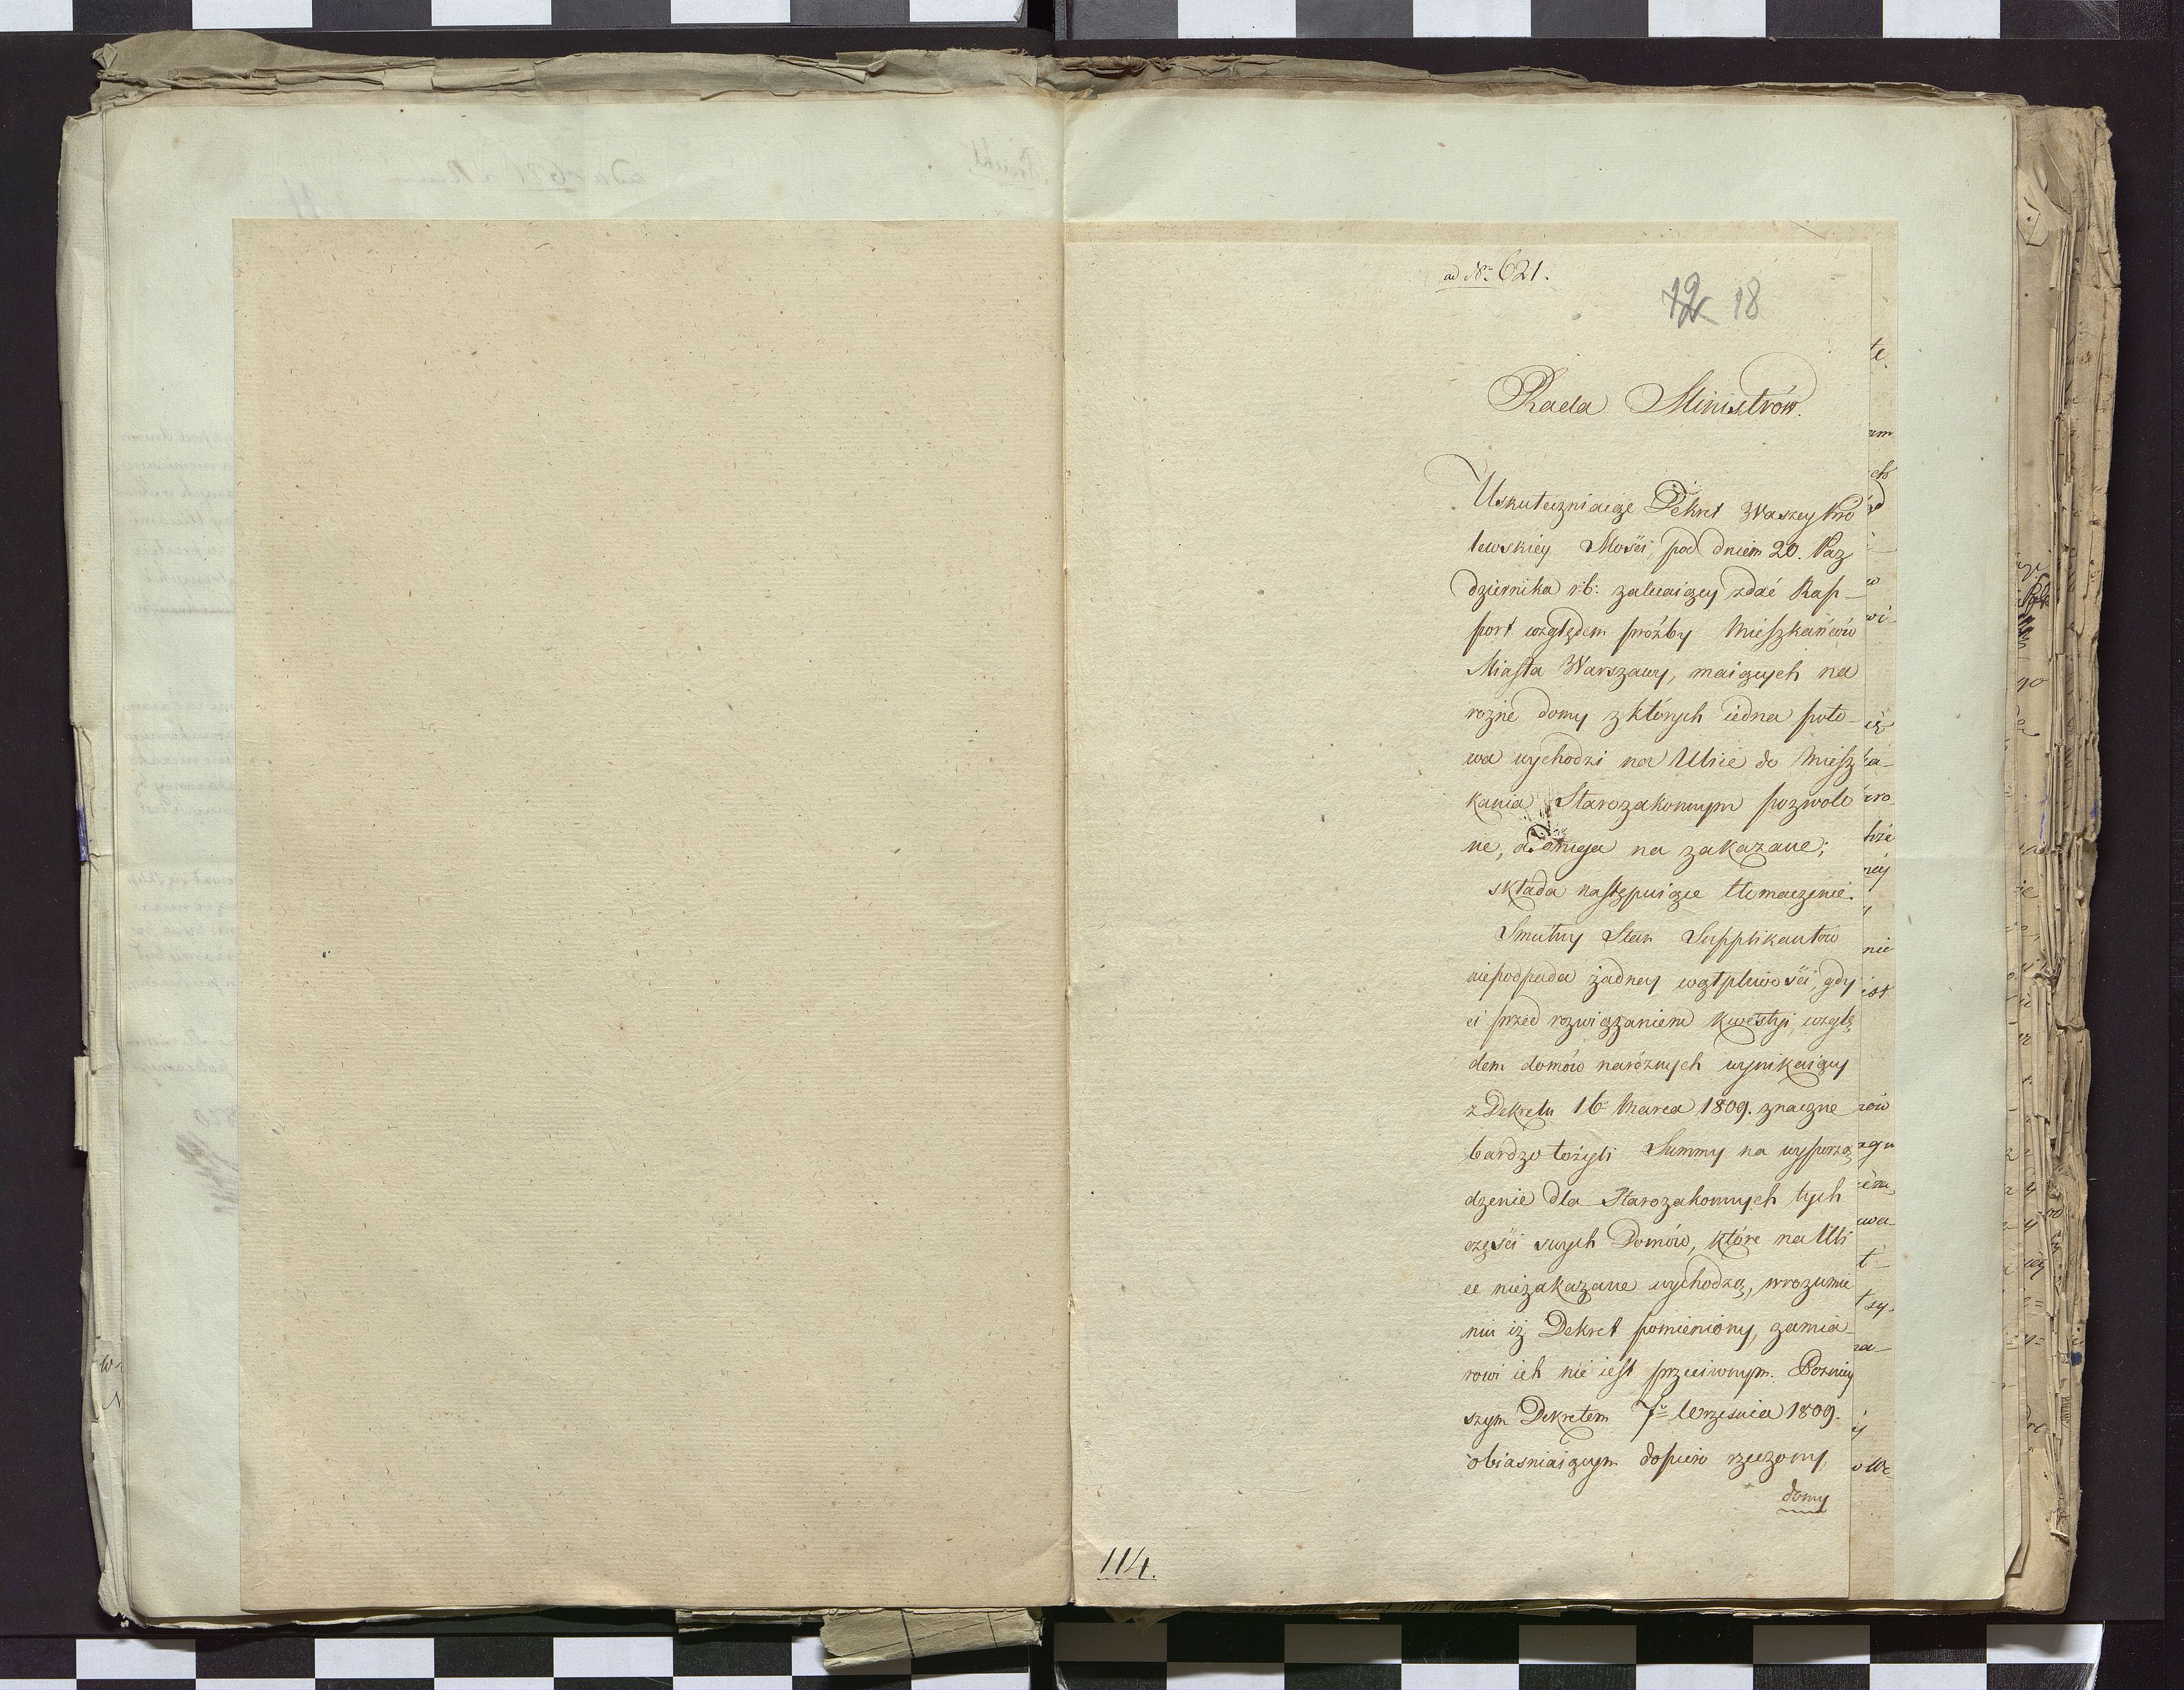 ad Nr 621.
12 18
Rada Ministrów.
Uskuteczniaiąc Dekret Waszey Kró
lewskiey Mości, pod dniem 20. Paz
dziernika r: b: zalecaiący zdać Rap-
port względem proźby Mieszkańców
Miasta Warszawy, maiących na
rozne domy z których iedna poło-
wa wychodzi na Ulice do Miesz
kania Starozakonnym pozwolo
ne, a druga na zakazane;
składa następuiące tłomaczenie.
Smutny Stan Supplikantów
niepodpada żadney wątpliwości, gdy
ci przed rozwiązaniem kwestyi, wzglę
dem domów narożnych wynikaiącey
z Dekretu 16 Marca 1809. znaczne
bardzo łożyli Summy na wyporzą
dzenie dla Starozakonnych tych
części swych Domów, które na Uli
ce niezakazane wychodzą, wrozumie
niu iż Dekret pomieniony, zamia-
rowi ich nie iest przeciwnym. Poźniey
szym Dekretem 7o Września 1809.
obiasniaiącym dopiero rzeczony,
domy
114.